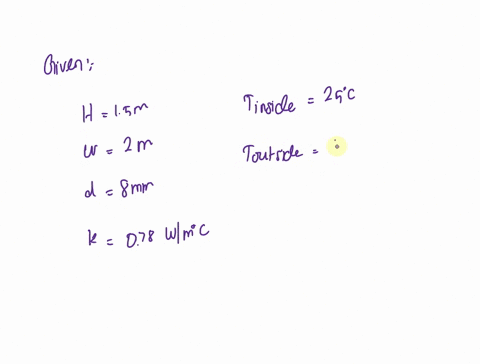 Given:
H = 1.5m
w = 2m
d = 8mm
k = 0.78 W/m°C
Tinside = 25°C
Toutside =